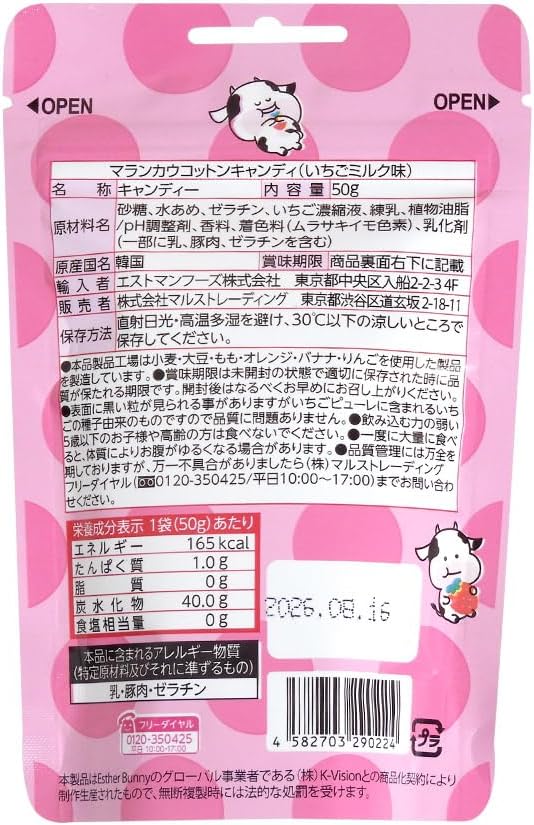 ◀OPEN
OPEN▶
マランカウコットンキャンディ(いちごミルク味)
名称 キャンディー 内容量 50g
原材料名 砂糖、水あめ、ゼラチン、いちご濃縮液、練乳、植物油脂
/pH調整剤、香料、着色料(ムラサキイモ色素)、乳化剤
(一部に乳、豚肉、ゼラチンを含む)
原産国名 韓国 賞味期限 商品裏面右下に記載
輸入者 エストマンフーズ株式会社 東京都中央区入船2-2-3 4F
販売者 株式会社マルストレーディング 東京都渋谷区道玄坂2-18-11
保存方法 直射日光・高温多湿を避け、30℃以下の涼しいところで
保存してください。
●本品製品工場は小麦・大豆・もも・オレンジ・バナナ・りんごを使用した製品
を製造しています。●賞味期限は未開封の状態で適切に保存された時に品
質が保たれる期限です。開封後はなるべくお早めにお召し上がりください。
●表面に黒い粒が見られる事がありますがいちごピューレに含まれるいち
ごの種子由来のものですので品質に問題ありません。●飲み込む力の弱い
5歳以下のお子様や高齢の方は食べないでください。●一度に大量に食べ
ると、体質によりお腹がゆるくなる場合があります。●品質管理には万全を
期しておりますが、万一不具合がありましたら(株)マルストレーディング
フリーダイヤル(0120-350425/平日10:00〜17:00)までお問い合わ
せください。
栄養成分表示 1袋(50g)あたり
エネルギー 165kcal
たんぱく質 1.0g
脂質 0g
炭水化物 40.0g
食塩相当量 0g
2026.08.16
本品に含まれるアレルギー物質
(特定原材料及びそれに準ずるもの)
乳・豚肉・ゼラチン
フリーダイヤル
0120-350425
平日 10:00-17:00
4 582703 290224
プラ
本製品はEsther Bunnyのグローバル事業者である(株)K-Visionとの商品化契約により
制作生産されたもので、無断複製時には法的な処罰を受けます。